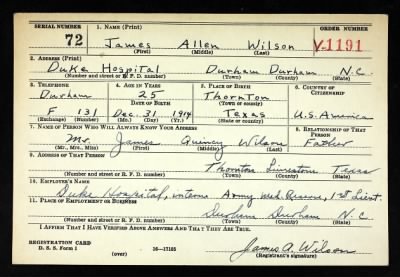 SERIAL NUMBER 1. NAME (Print) ORDER NUMBER
72 James Allen Wilson V-1191
(First) (Middle) (Last)
2. ADDRESS (Print)
Duke Hospital Durham Durham N.C.
(Number and street or R. F. D. number) (Town) (County) (State)
3. TELEPHONE 4. AGE IN YEARS 5. PLACE OF BIRTH 6. COUNTRY OF CITIZENSHIP
Durham 25 Thornton
(Exchange) DATE OF BIRTH (Town or county)
F 131 Dec. 31 1914 Texas U.S. America
(Number) (Mo.) (Day) (Yr.) (State or country)
7. NAME OF PERSON WHO WILL ALWAYS KNOW YOUR ADDRESS 8. RELATIONSHIP OF THAT PERSON
Mr. James Quincy Wilson Father
(Mr., Mrs., Miss) (First) (Middle) (Last)
9. ADDRESS OF THAT PERSON
Thornton Limestone Texas
(Number and street or R. F. D. number) (Town) (County) (State)
10. EMPLOYER'S NAME
Duke Hospital, interne Army Med. Reserve, 1st Lieut.
11. PLACE OF EMPLOYMENT OR BUSINESS
Durham Durham N.C.
(Number and street or R. F. D. number) (Town) (County) (State)
I AFFIRM THAT I HAVE VERIFIED ABOVE ANSWERS AND THAT THEY ARE TRUE.
REGISTRATION CARD James A. Wilson
D. S. S. Form 1 (over) 16—17105 (Registrant's signature)